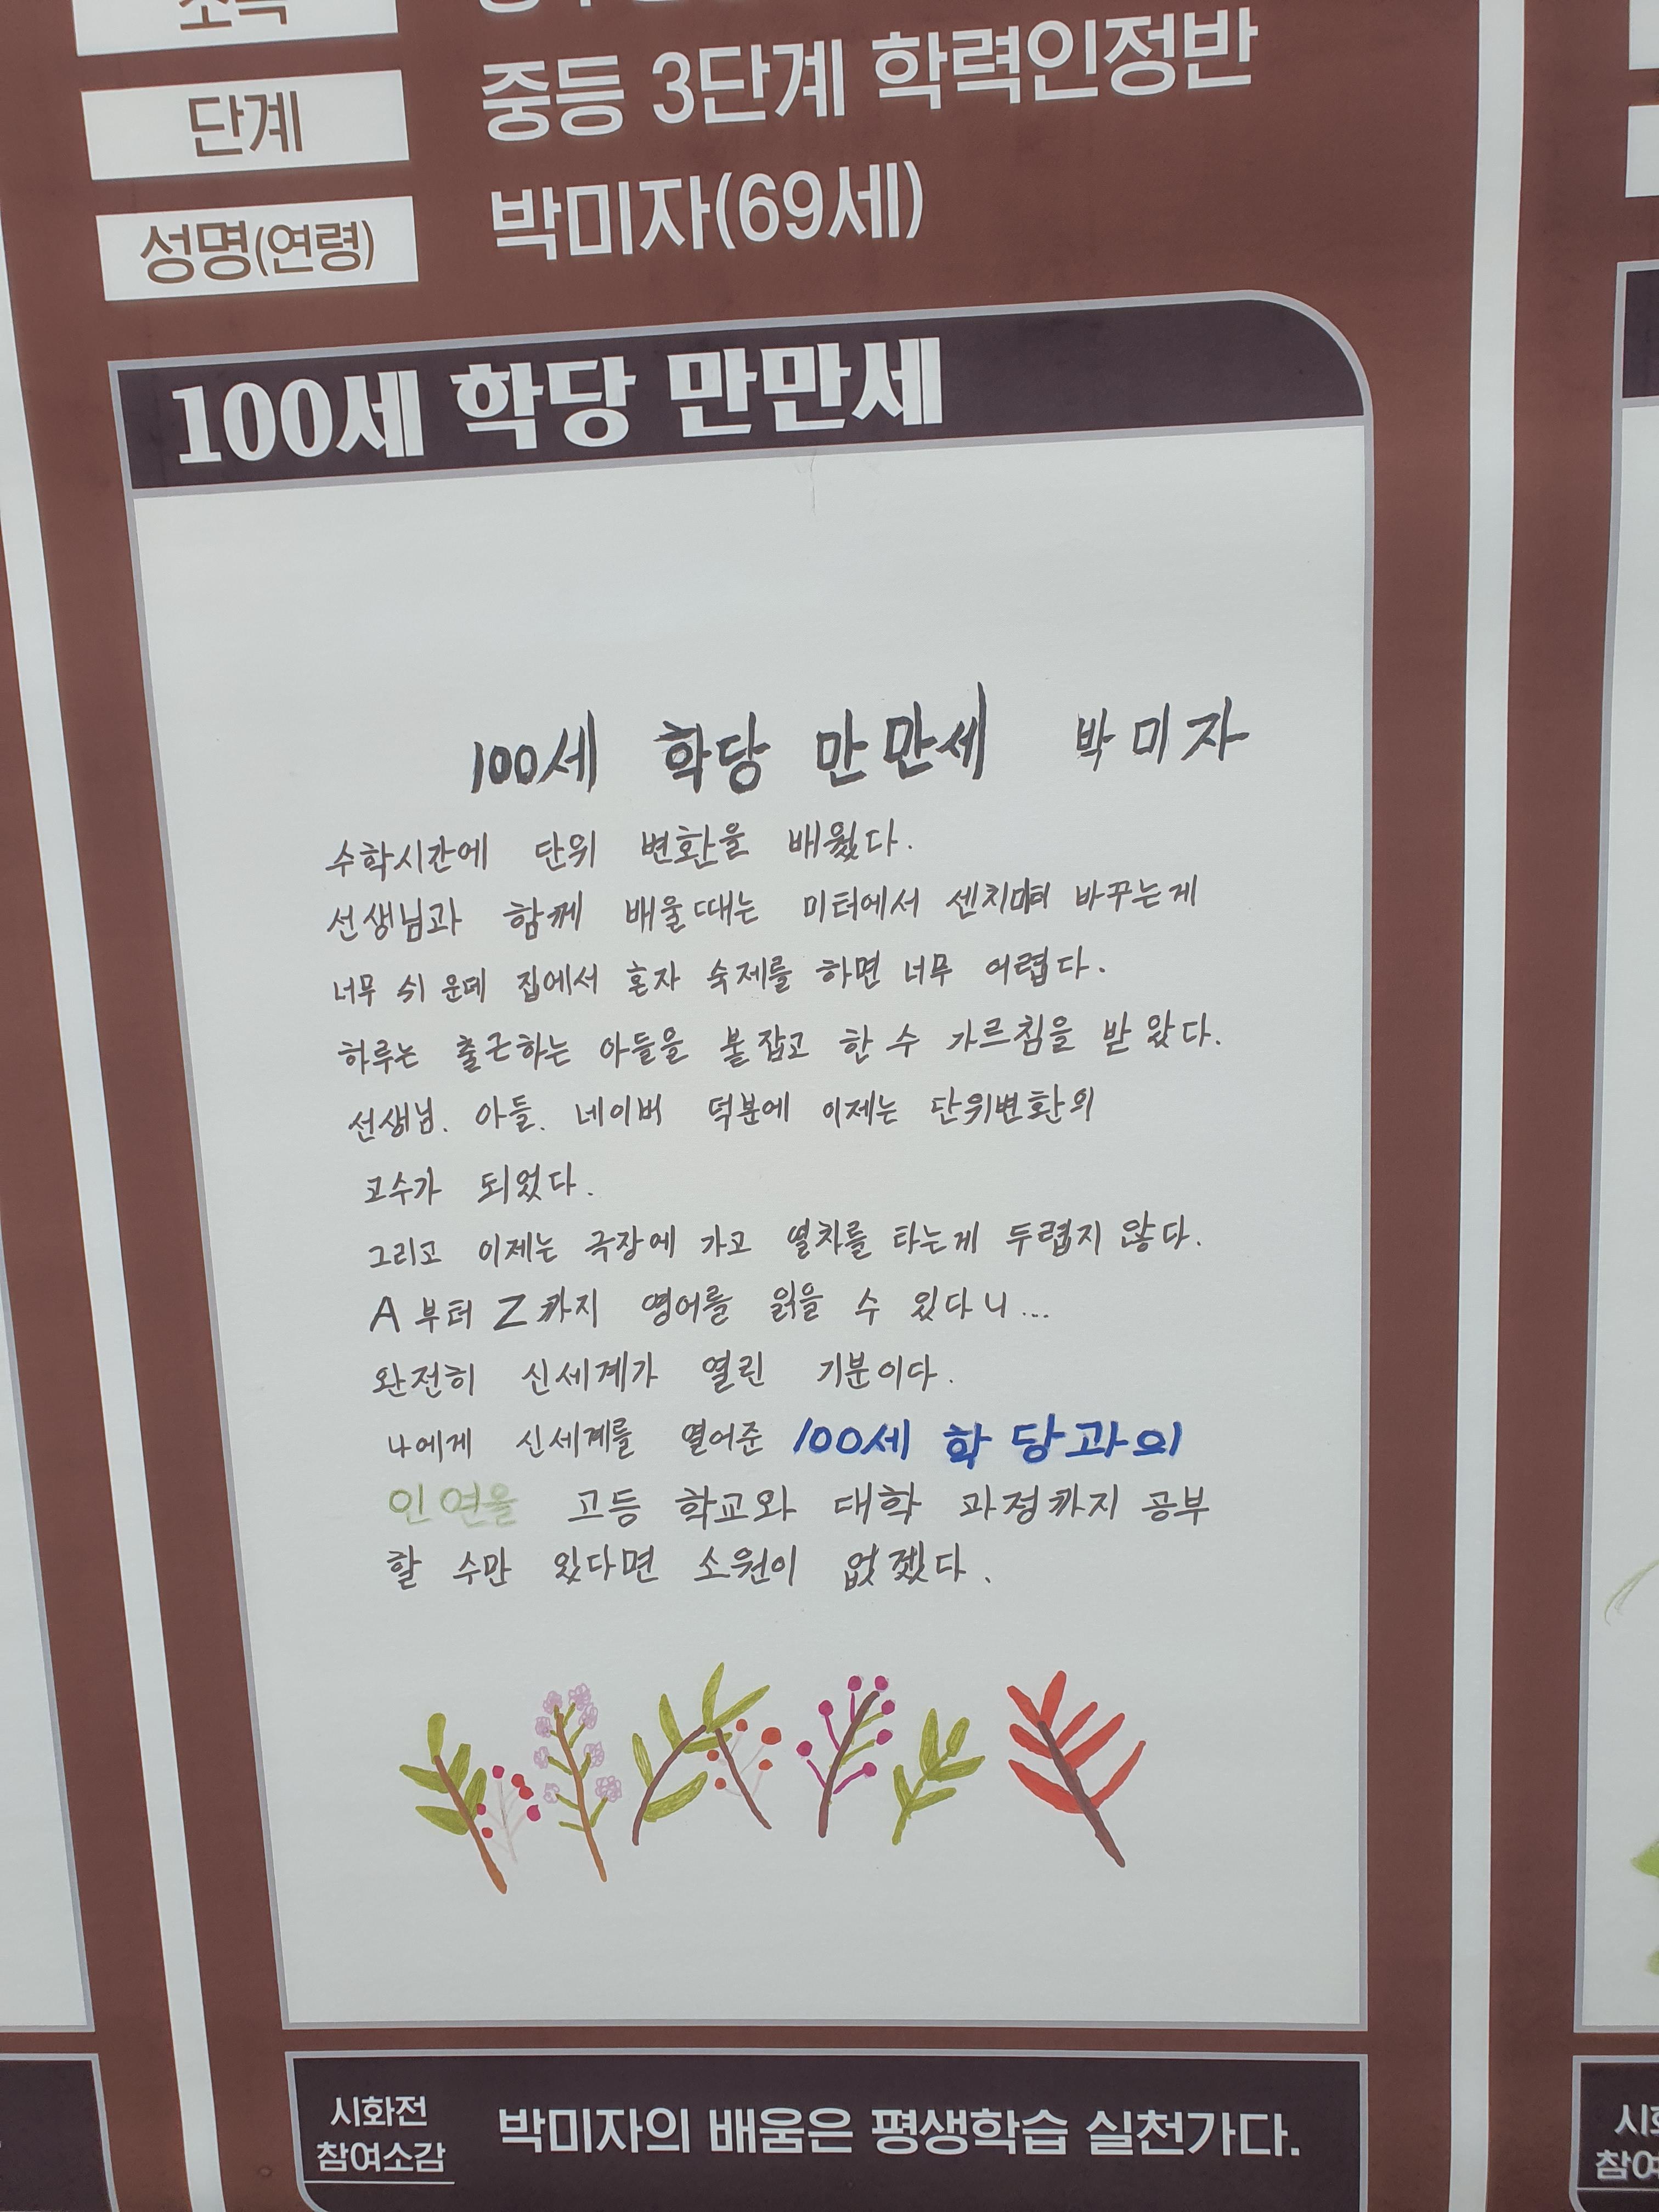 단계
중등 3단계 학력인정반
성명(연령)
박미자(69세)
100세 학당 만만세
100세 학당 만만세 박미자
수학시간에 단위 변환을 배웠다.
선생님과 함께 배울때는 미터에서 센치미터 바꾸는게
너무 쉬운데 집에서 혼자 숙제를 하면 너무 어렵다.
하루는 출근하는 아들을 붙잡고 한 수 가르침을 받았다.
선생님. 아들. 네이버 덕분에 이제는 단위변환의
고수가 되었다.
그리고 이제는 극장에 가고 열차를 타는게 두렵지 않다.
A부터 Z까지 영어를 읽을 수 있다니...
완전히 신세계가 열린 기분이다.
나에게 신세계를 열어준 100세 학당과의
인연을 고등 학교와 대학 과정까지 공부
할 수만 있다면 소원이 없겠다.
시화전
참여소감
박미자의 배움은 평생학습 실천가다.